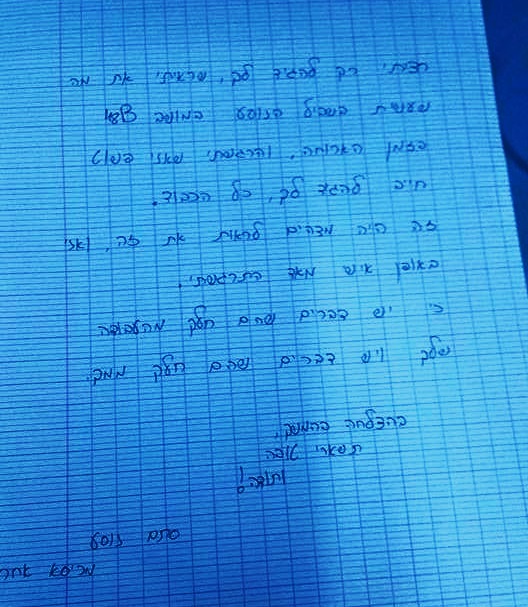 רציתי רק להגיד לך, שראיתי את מה
שעשית בשביל הנוסע במושב 48B
בזמן הארוחה, והרגשתי שאני פשוט
חייב להגיד לך, כל הכבוד.
זה היה מדהים לראות את זה, ואני
באופן אישי מאד התרגשתי.
כי יש דברים שהם חלק מהעבודה
שלך ויש דברים שהם חלק ממך.
בהצלחה בהמשך,
תשארי טובה
ותודה!
סתם נוסע
מכיסא אחר